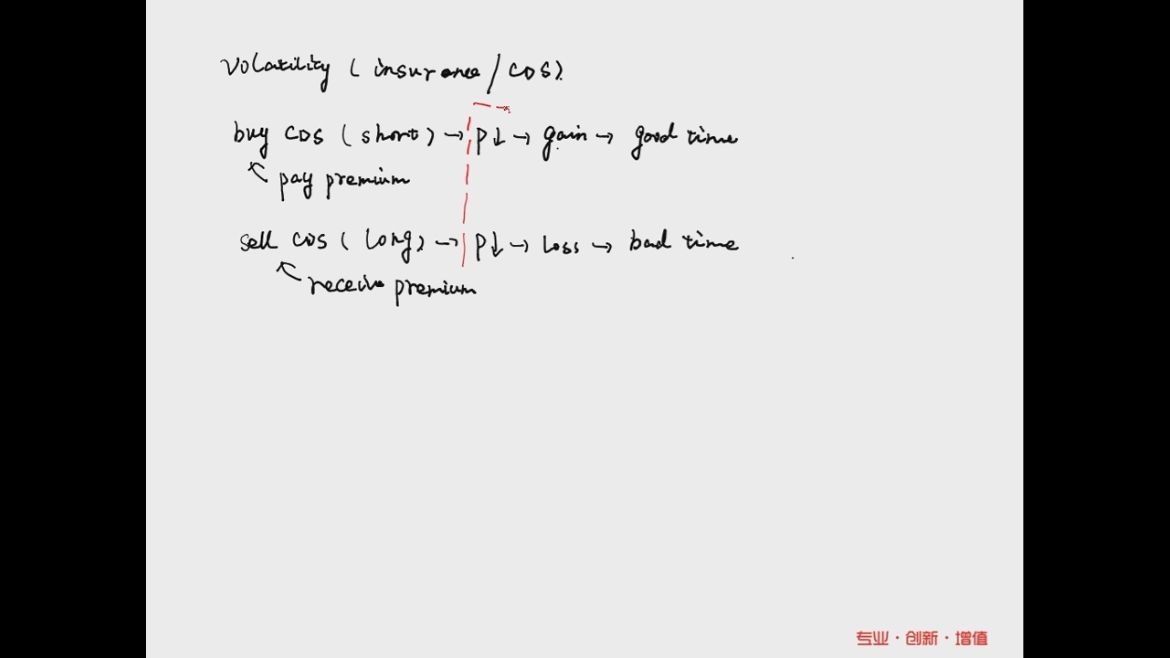 Volatility (insurance/CDS)
buy CDS (short) → P↓ → gain → good time
pay premium
sell CDS (long) → P↓ → Loss → bad time
receive premium
专业·创新·增值